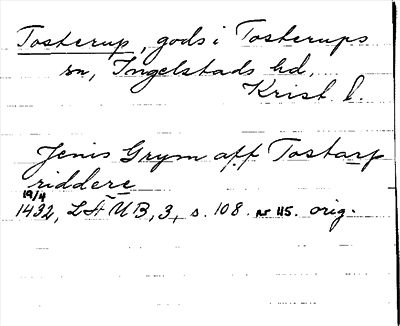 Tosterup, gods i Tosterups
sn, Ingelstads hd,
Krist l.
Jenis Grym aff Tostarp
riddere
19/4
1432, LÄUB, 3, s. 108. nr 115. orig.